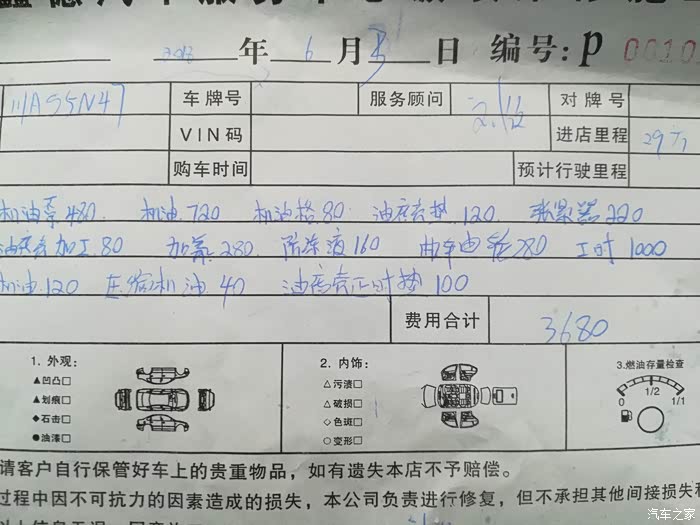 年 6 月 日 编号: P 0010
川A55N47 车牌号 服务顾问 对牌号
VIN码 进店里程 29万
购车时间 预计行驶里程
机油泵480. 机油.720 机油格80. 油底壳垫.120. 张紧器220
油底壳加工.80 加氟280. 防冻液160 曲车由轮280 工时1000
机油.120 压缩机油.40 油底壳正时垫100
费用合计 3680
1. 外观: 2. 内饰: 3.燃油存量检查
▲凹凸□ △污渍□
▲划痕□ △破损□ 0 1/2 1/1
◆石击□ ◇色斑□
●油漆□ ○变形□
请客户自行保管好车上的贵重物品，如有遗失本店不予赔偿。
过程中因不可抗力的因素造成的损失，本公司负责进行修复，但不承担其他间接损失和
汽车之家